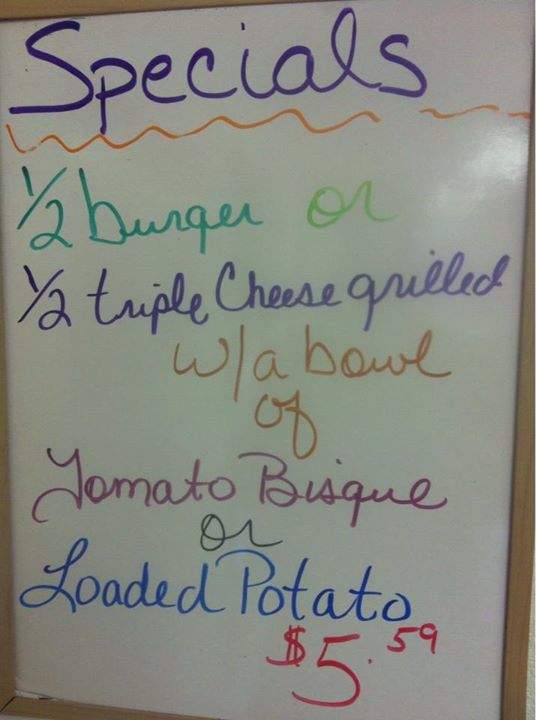 Specials
1/2 burger or
1/2 triple Cheese grilled
w/a bowl
of
Tomato Bisque
or
Loaded Potato
$5.59